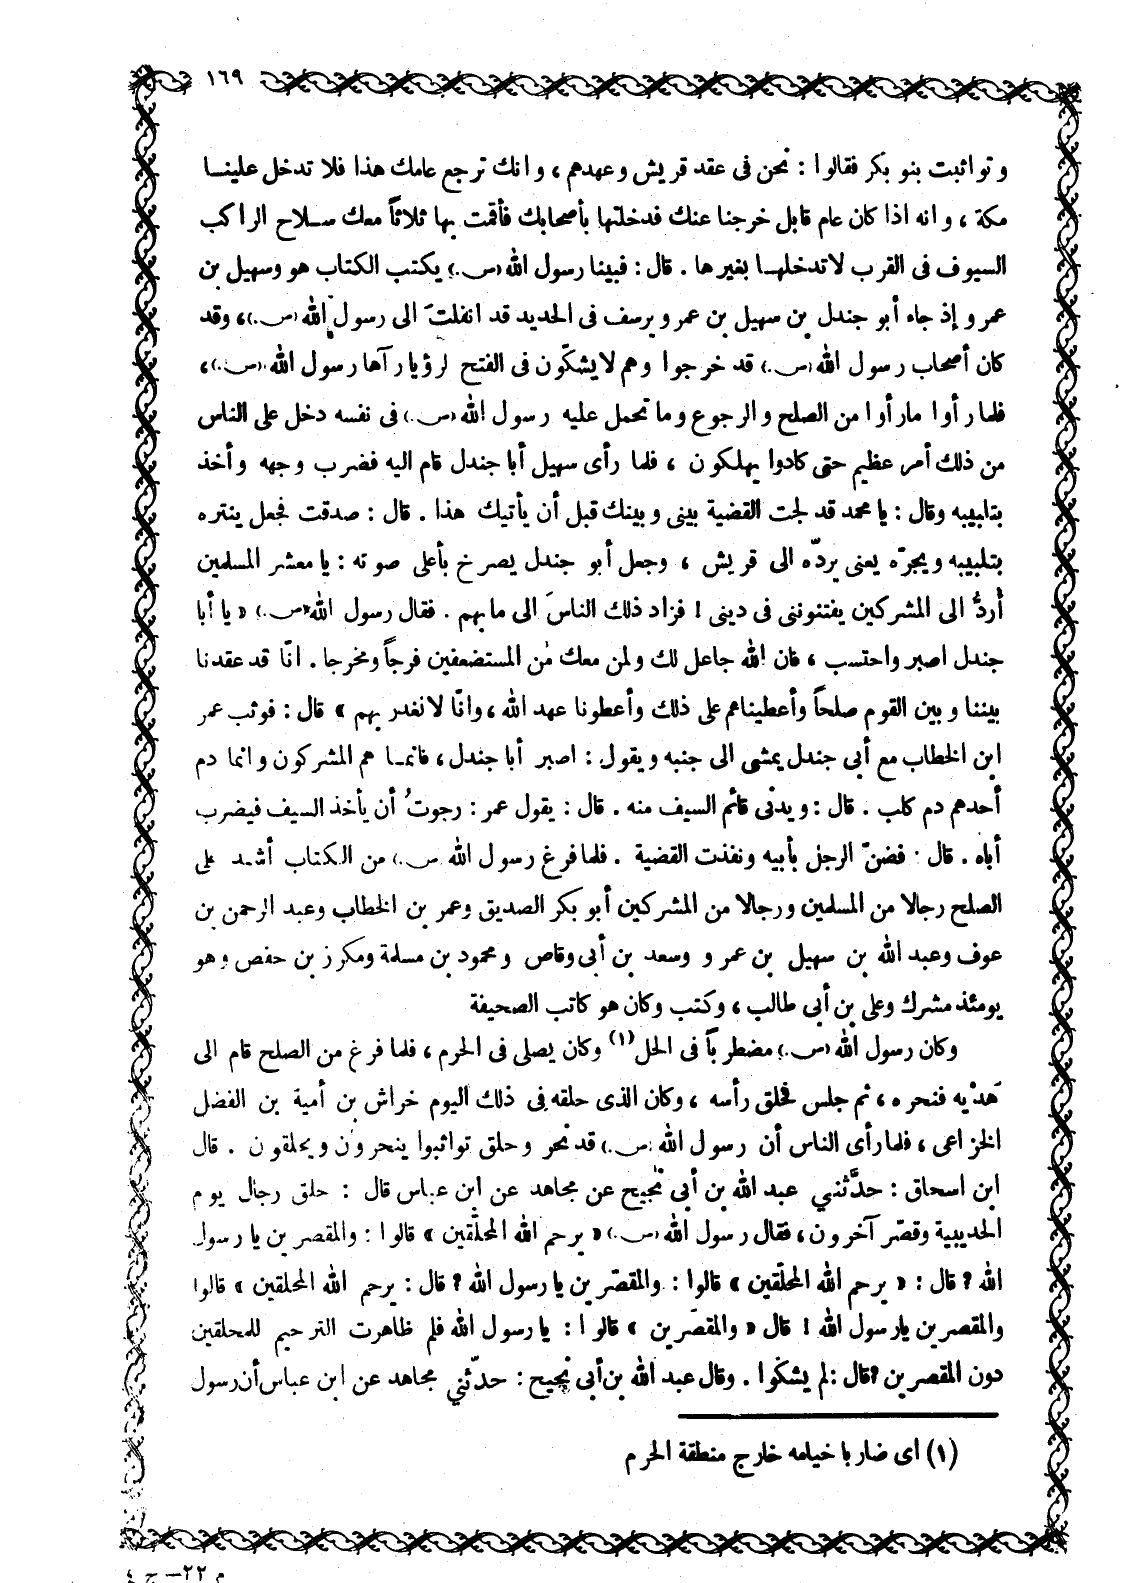 ١٦٩
وتواثبت بنو بكر فقالوا : نحن فى عقد قريش وعهدهم ، وانك ترجع عامك هذا فلا تدخل علينا
مكة ، وانه اذا كان عام قابل خرجنا عنك فدخلتها بأصحابك فأقمت بها ثلاثاً معك سلاح الراكب
السيوف فى القرب لاتدخلها بغيرها . قال : فبينا رسول الله (ص.) يكتب الكتاب هو وسهيل بن
عمرو إذ جاء أبو جندل بن سهيل بن عمرو يرسف فى الحديد قد انفلتَ الى رسول الله (ص.) ، وقد
كان أصحاب رسول الله (ص.) قد خرجوا وهم لايشكّون فى الفتح لرؤيا رآها رسول الله (ص.) ،
فلما رأوا مارأوا من الصلح والرجوع وما تحمل عليه رسول الله (ص.) فى نفسه دخل على الناس
من ذلك أمر عظيم حتى كادوا يهلكون ، فلما رأى سهيل أبا جندل قام اليه فضرب وجهه وأخذ
بتلبيبه وقال : يا محمد قد لجت القضية بينى وبينك قبل أن يأتيك هذا . قال : صدقت فجعل ينتره
بتلبيبه ويجرّه يعنى يردّه الى قريش ، وجعل أبو جندل يصرخ بأعلى صوته : يا معشر المسلمين
أُردُّ الى المشركين يفتنوننى فى دينى ! فزاد ذلك الناسَ الى ما بهم . فقال رسول الله (ص.) « يا أبا
جندل اصبر واحتسب ، فان الله جاعل لك ولمن معك من المستضعفين فرجاً ومخرجا . انّا قد عقدنا
بيننا وبين القوم صلحاً وأعطيناهم على ذلك وأعطونا عهد الله ، وانّا لا نغدر بهم » قال : فوثب عمر
ابن الخطاب مع أبي جندل يمشى الى جنبه ويقول : اصبر أبا جندل ، فانما هم المشركون وانما دم
أحدهم دم كلب . قال : ويدنى قائم السيف منه . قال : يقول عمر : رجوتُ أن يأخذ السيف فيضرب
أباه . قال : فضنّ الرجل بأبيه ونفذت القضية . فلما فرغ رسول الله (ص.) من الكتاب أشهد على
الصلح رجالا من المسلمين ورجالا من المشركين أبو بكر الصديق وعمر بن الخطاب وعبد الرحمن بن
عوف وعبد الله بن سهيل بن عمرو وسعد بن أبى وقاص ومحمود بن مسلمة ومكرز بن حفص وهو
يومئذ مشرك وعلى بن أبي طالب ، وكتب وكان هو كاتب الصحيفة
وكان رسول الله (ص.) مضطرباً فى الحل (١) وكان يصلى فى الحرم ، فلما فرغ من الصلح قام الى
هَدْيه فنحره ، ثم جلس فحلق رأسه ، وكان الذى حلقه فى ذلك اليوم خراش بن أمية بن الفضل
الخزاعى ، فلما رأى الناس أن رسول الله (ص.) قد نحر وحلق تواثبوا ينحرون ويحلقون . قال
ابن اسحاق : حدَّثني عبد الله بن أبي نجيح عن مجاهد عن ابن عباس قال : حلق رجال يوم
الحديبية وقصّر آخرون ، فقال رسول الله (ص.) « يرحم الله المحلّقين » قالوا : والمقصرين يا رسول
الله ? قال : « يرحم الله المحلّقين » قالوا : والمقصّرين يا رسول الله ? قال : يرحم الله المحلقين » قالوا
والمقصرين يارسول الله ! قال « والمقصّرين » قالوا : يا رسول الله فلم ظاهرت الترحيم للمحلقين
دون المقصرين ? قال : لم يشكوا . وقال عبد الله بن أبى نجيح : حدّثني مجاهد عن ابن عباس أن رسول
(١) اى ضاربا خيامه خارج منطقة الحرم
م ٢٢ – ج ٤